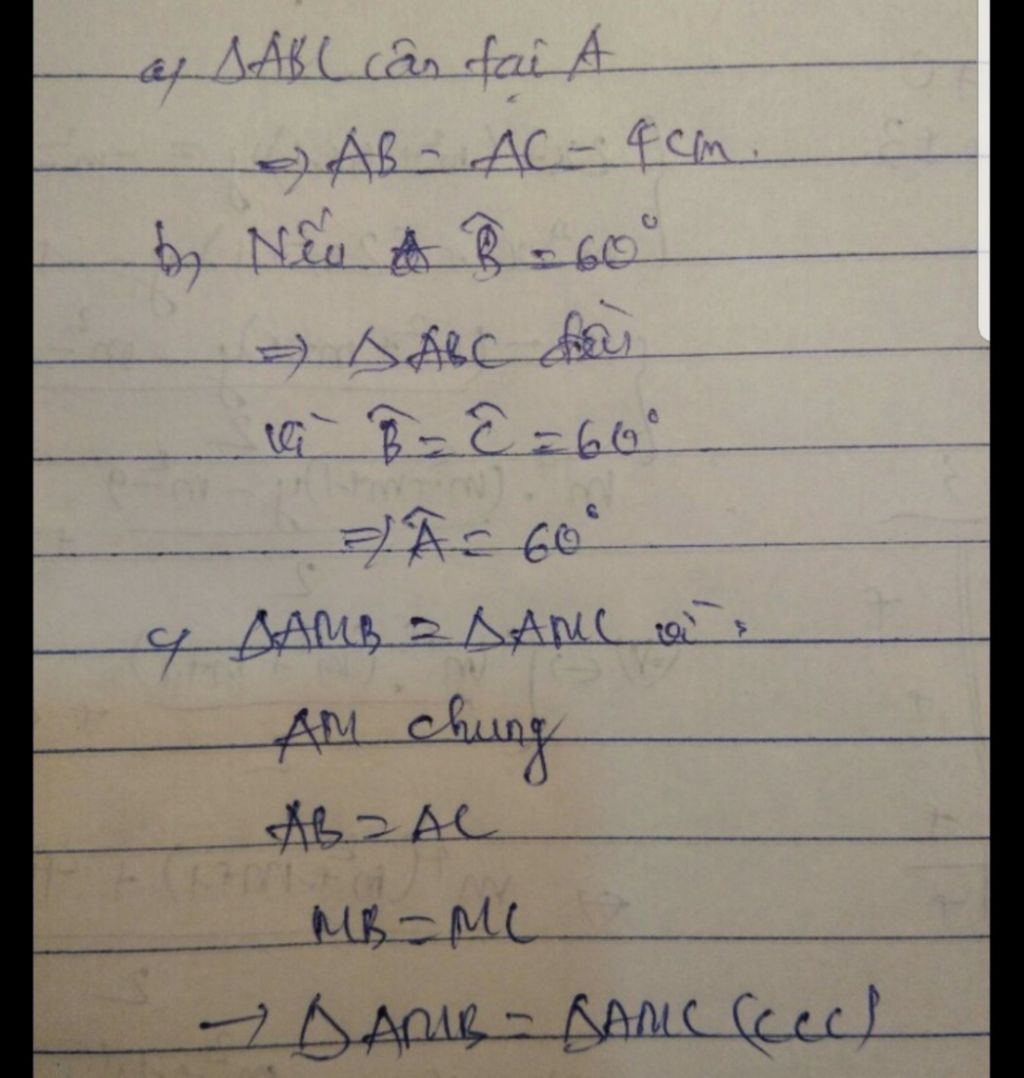 a) ΔABC cân tại A
=> AB = AC = 4cm.
b) Nếu B̂ = 60°
=> ΔABC đều
vì B̂ = Ĉ = 60°
=> Â = 60°
c) ΔAMB = ΔAMC vì :
AM chung
AB = AC
MB = MC
→ ΔAMB = ΔAMC (ccc)